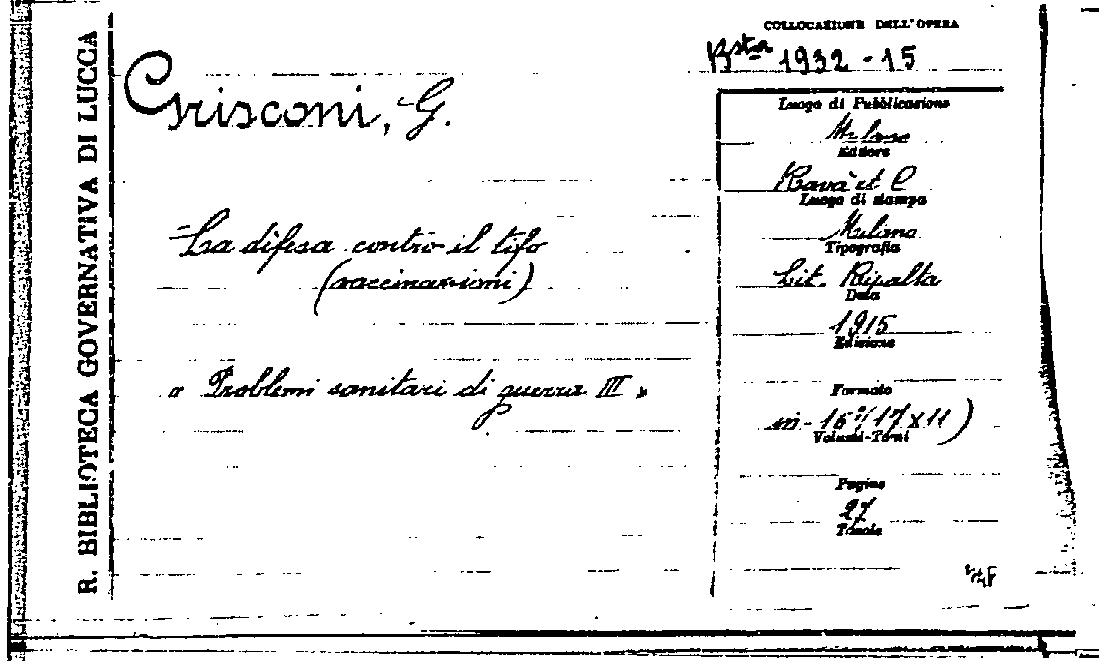 R. BIBLIOTECA GOVERNATIVA DI LUCCA
COLLOCAZIONE DELL'OPERA
Bsta 1932-15
Crisconi, G.
La difesa contro il tifo
(vaccinazioni)
« Problemi sanitari di guerra III »
Luogo di Pubblicazione
Milano
Editore
Ravà et C
Luogo di stampa
Milano
Tipografia
Lit. Ripalta
Data
1915
Edizione
Formato
in-16º/17x11)
Volumi-Tomi
Pagine
27
Tavole